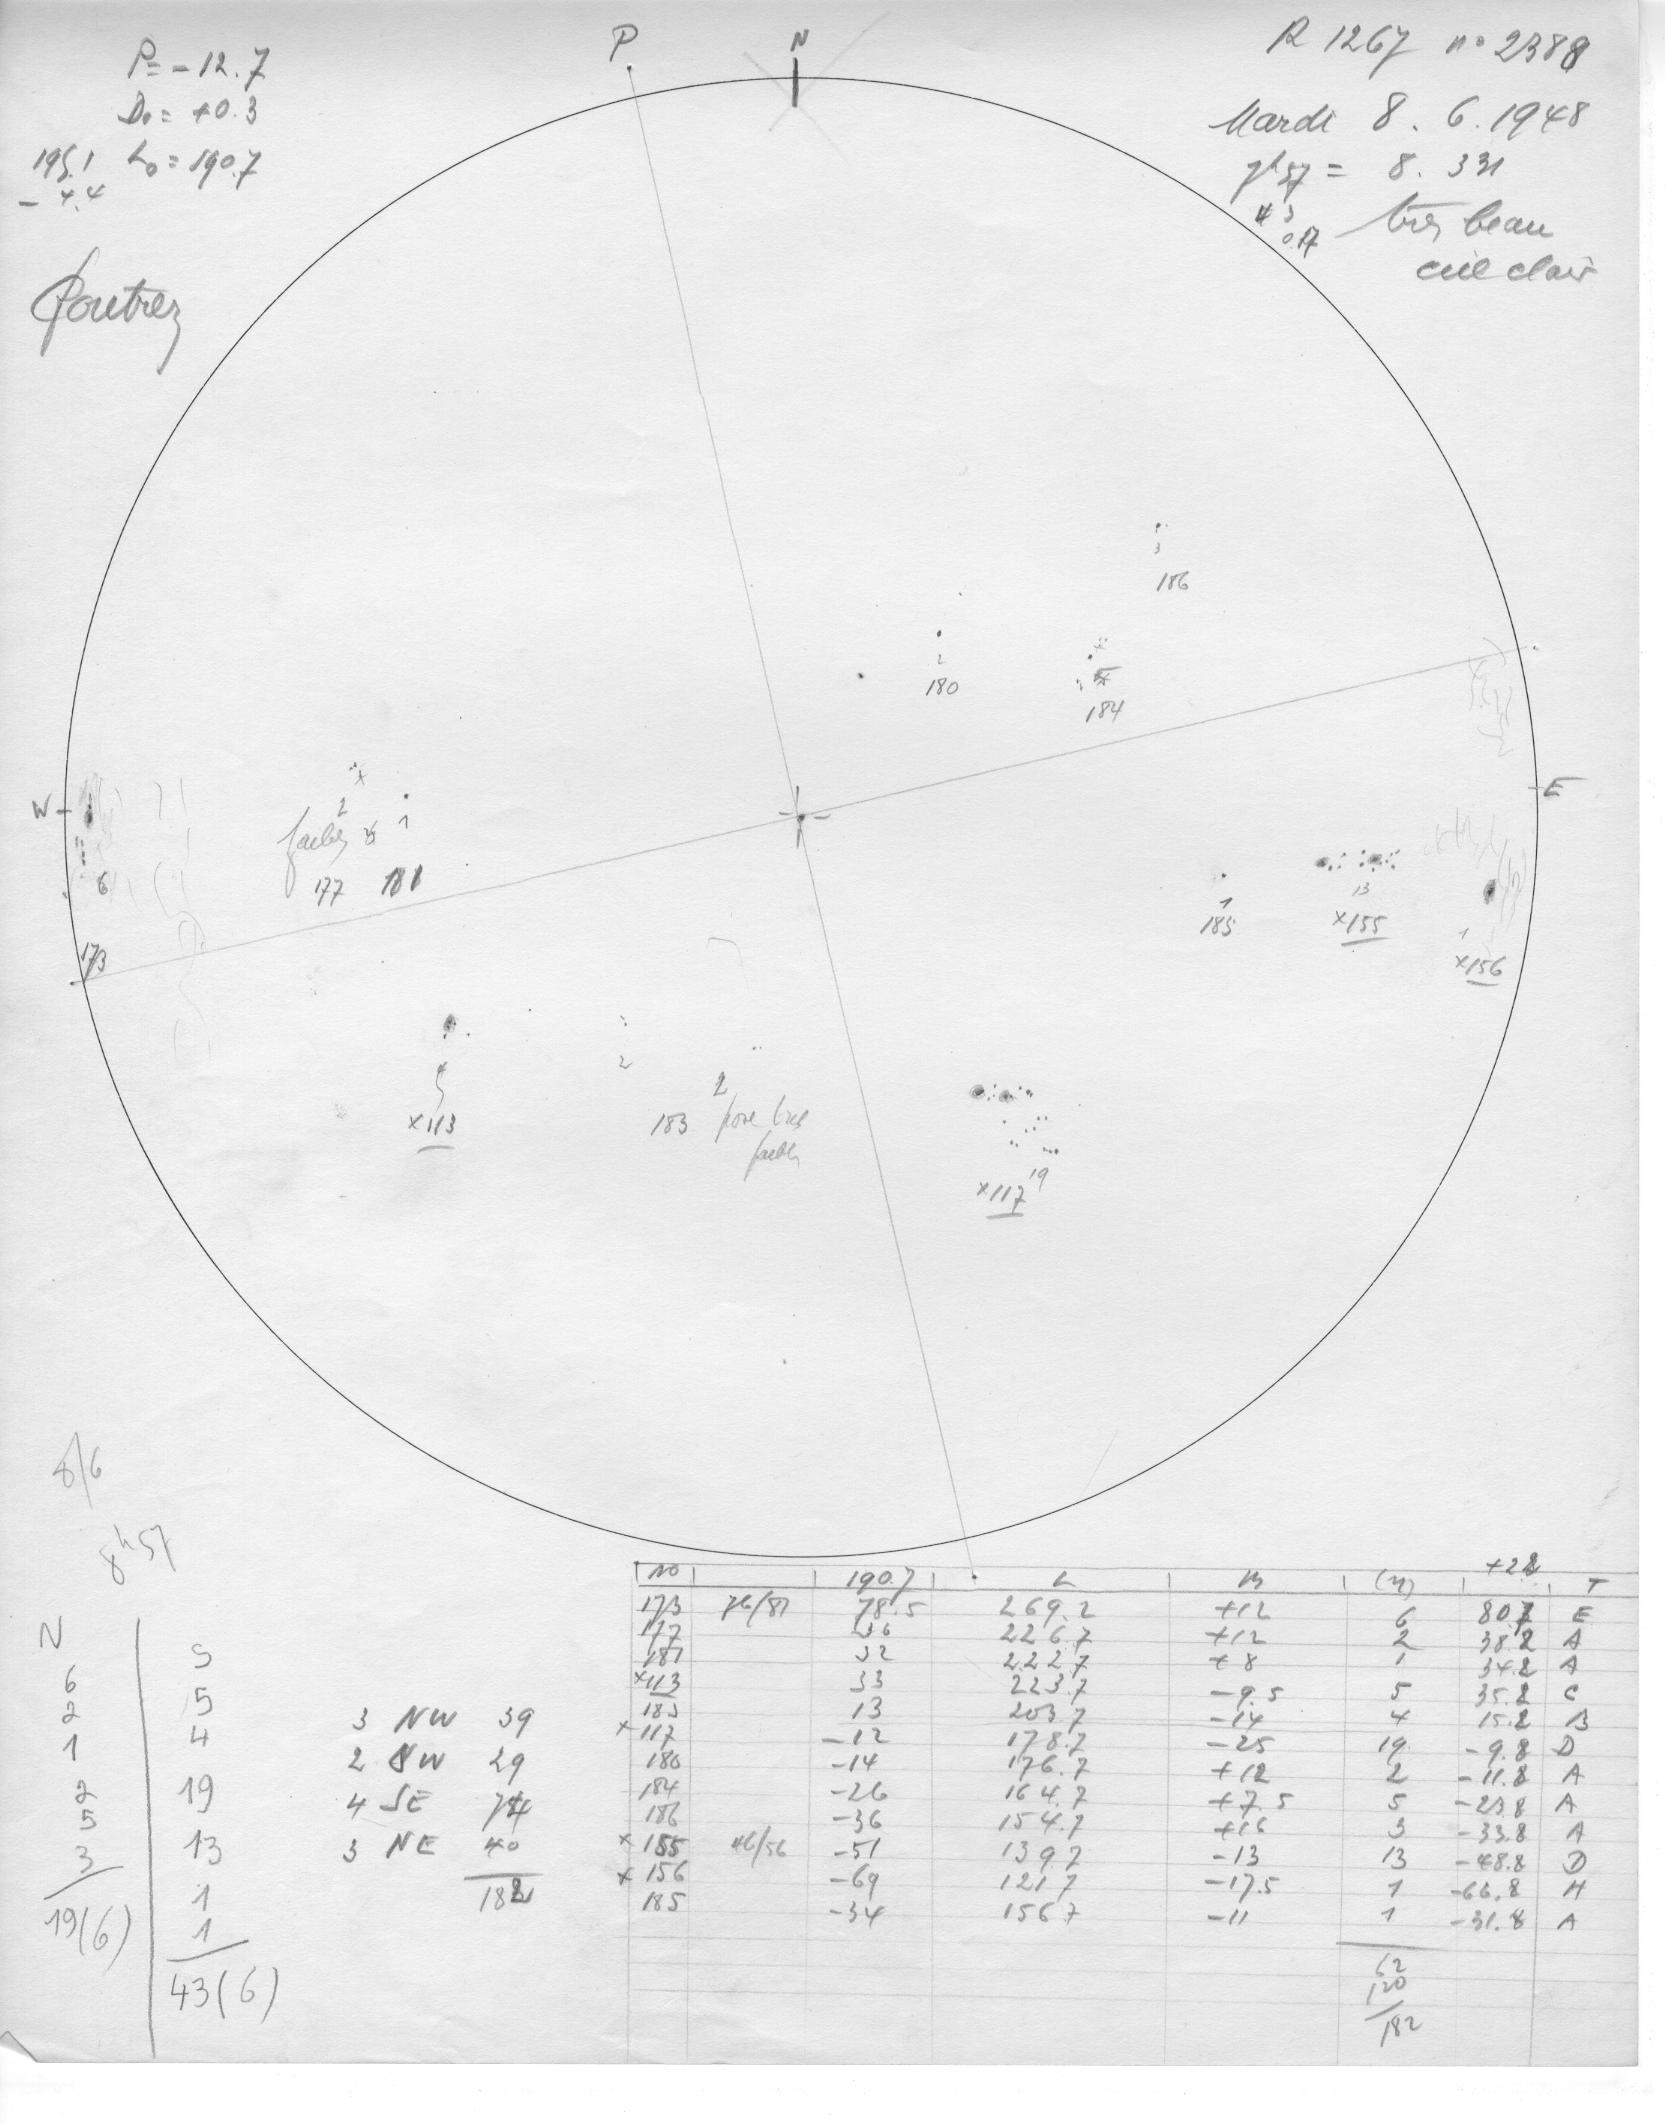 P= -12.7
D₀= +0.3
195.1 L₀=190.7
- 4.4
P
N
R 1267 no 2388
Mardi 8. 6. 1948
7h57 = 8. 331
très beau
ciel clair
3
186
2
180
184
W
E
2
faibles
1
177 181
6
173
1
185
13
x155
1
x156
5
x113
2
183
2
pore très
faible
19
x117
8/6
8h57
N
6
2
1
2
5
3
19(6)
S
5
4
19
13
1
1
43(6)
3 NW 39
2 SW 29
4 SE 74
3 NE 40
182
+2.2
no 190.7 L B (n) T
173 76/81 78.5 269.2 +12 6 80.7 E
177 36 226.7 +12 2 38.2 A
181 32 222.7 +8 1 34.2 A
x113 33 223.7 -9.5 5 35.2 C
183 13 203.7 -14 4 15.2 B
x117 -12 178.7 -25 19 -9.8 D
180 -14 176.7 +12 2 -11.8 A
184 -26 164.7 +7.5 5 -23.8 A
186 -36 154.7 +16 3 -33.8 A
x155 46/56 -51 139.7 -13 13 -48.8 D
x156 -69 121.7 -17.5 1 -66.8 H
185 -34 156.7 -11 1 -31.8 A
62
120
182